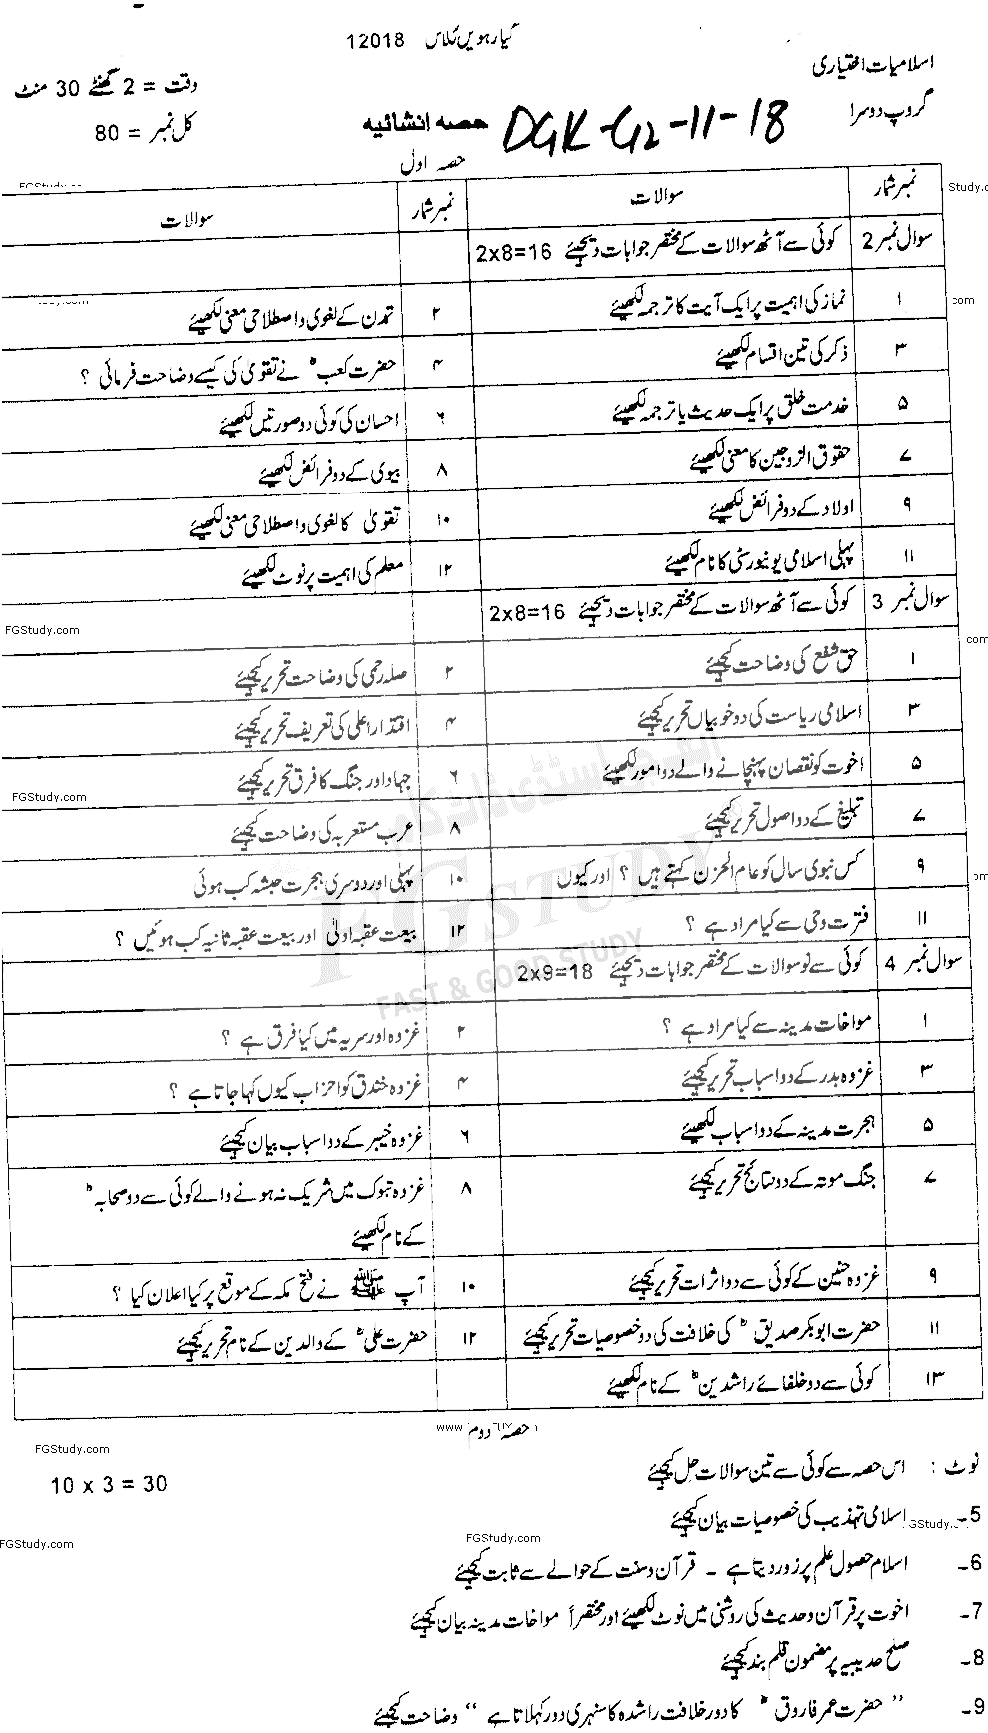 گیارہویں کلاس 12018
اسلامیات اختیاری
وقت = 2 گھنٹے 30 منٹ
گروپ دوسرا
حصہ انشائیہ
DGK-G2-11-18
کل نمبر = 80
حصہ اول
نمبر شمار سوالات نمبر شمار سوالات
سوال نمبر 2 کوئی سے آٹھ سوالات کے مختصر جوابات دیجئیے 2x8=16
۱ نماز کی اہمیت پر ایک آیت کا ترجمہ لکھئیے ۲ تمدن کے لغوی و اصطلاحی معنی لکھئیے
۳ ذکر کی تین اقسام لکھئیے ۴ حضرت کعبؓ نے تقویٰ کی کیسے وضاحت فرمائی ؟
۵ خدمت خلق پر ایک حدیث یا ترجمہ لکھئیے ۶ احسان کی کوئی دو صورتیں لکھئیے
۷ حقوق الزوجین کا معنی لکھئیے ۸ بیوی کے دو فرائض لکھئیے
۹ اولاد کے دو فرائض لکھئیے ۱۰ تقویٰ کا لغوی و اصطلاحی معنی لکھئیے
۱۱ پہلی اسلامی یونیورسٹی کا نام لکھئیے ۱۲ معلم کی اہمیت پر نوٹ لکھئیے
سوال نمبر 3 کوئی سے آٹھ سوالات کے مختصر جوابات دیجئیے 2x8=16
۱ حق شفع کی وضاحت کیجئیے ۲ صلہ رحمی کی وضاحت تحریر کیجئیے
۳ اسلامی ریاست کی دو خوبیاں تحریر کیجئیے ۴ اقتدار اعلیٰ کی تعریف تحریر کیجئیے
۵ اخوت کو نقصان پہنچانے والے دو امور لکھئیے ۶ جہاد اور جنگ کا فرق تحریر کیجئیے
۷ تبلیغ کے دو اصول تحریر کیجئیے ۸ عرب مستعربہ کی وضاحت کیجئیے
۹ کس نبوی سال کو عام الحزن کہتے ہیں ؟ اور کیوں ۱۰ پہلی اور دوسری ہجرت حبشہ کب ہوئی
۱۱ فترت وحی سے کیا مراد ہے ؟ ۱۲ بیعت عقبہ اولیٰ اور بیعت عقبہ ثانیہ کب ہوئیں ؟
سوال نمبر 4 کوئی سے نو سوالات کے مختصر جوابات دیجئیے 2x9=18
۱ مواخات مدینہ سے کیا مراد ہے ؟ ۲ غزوہ اور سریہ میں کیا فرق ہے ؟
۳ غزوہ بدر کے دو اسباب تحریر کیجئیے ۴ غزوہ خندق کو احزاب کیوں کہا جاتا ہے ؟
۵ ہجرت مدینہ کے دو اسباب لکھئیے ۶ غزوہ خیبر کے دو اسباب بیان کیجئیے
۷ جنگ موتہ کے دو نتائج تحریر کیجئیے ۸ غزوہ تبوک میں شریک نہ ہونے والے کوئی سے دو صحابہؓ
کے نام لکھئیے
۹ غزوہ حنین کے کوئی سے دو اثرات تحریر کیجئیے ۱۰ آپ ﷺ نے فتح مکہ کے موقع پر کیا اعلان کیا ؟
۱۱ حضرت ابوبکر صدیقؓ کی خلافت کی دو خصوصیات تحریر کیجئیے ۱۲ حضرت علیؓ کے والدین کے نام تحریر کیجئیے
۱۳ کوئی سے دو خلفائے راشدینؓ کے نام لکھئیے
حصہ دوم www
نوٹ : اس حصہ سے کوئی سے تین سوالات حل کیجئیے 10 x 3 = 30
5- اسلامی تہذیب کی خصوصیات بیان کیجئیے
6- اسلام حصول علم پر زور دیتا ہے ۔ قرآن و سنت کے حوالے سے ثابت کیجئیے
7- اخوت پر قرآن و حدیث کی روشنی میں نوٹ لکھئیے اور مختصراً مواخات مدینہ بیان کیجئیے
8- صلح حدیبیہ پر مضمون قلم بند کیجئیے
9- " حضرت عمر فاروقؓ کا دور خلافت راشدہ کا سنہری دور کہلاتا ہے " وضاحت کیجئیے
FGStudy.com
FGStudy.com
FGStudy.com
FGStudy.com
FGStudy.com
FG STUDY
FAST & GOOD STUDY